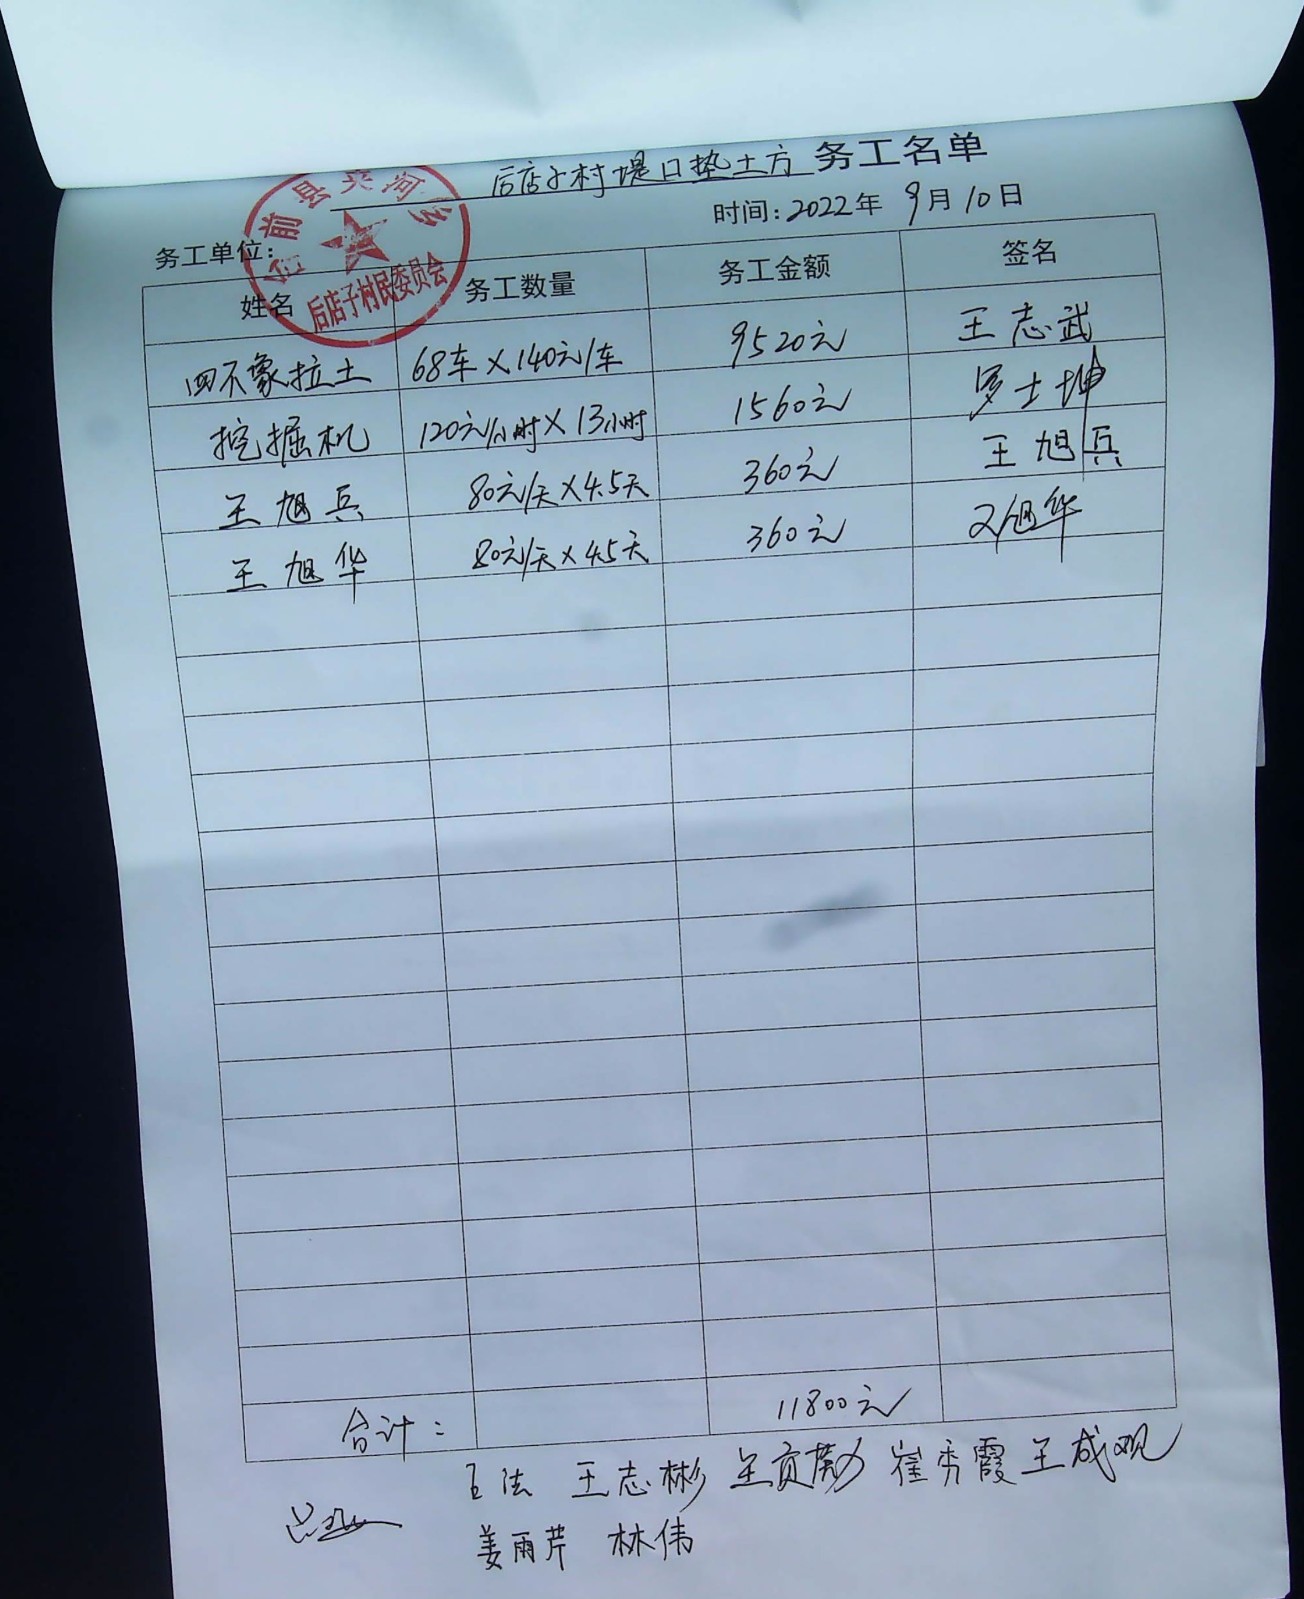 后店子村堤口垫土方 务工名单
时间: 2022年 9月 10日
务工单位:
台前县夹河乡
后店子村民委员会
姓名 务工数量 务工金额 签名
四不象拉土 68车×140元/车 9520元 王志武
挖掘机 120元/小时×13小时 1560元 罗士坤
王旭兵 80元/天×4.5天 360元 王旭兵
王旭华 80元/天×4.5天 360元 旭华
合计: 11800元
王志彬 崔秀霞 王成观
姜雨芹 林伟